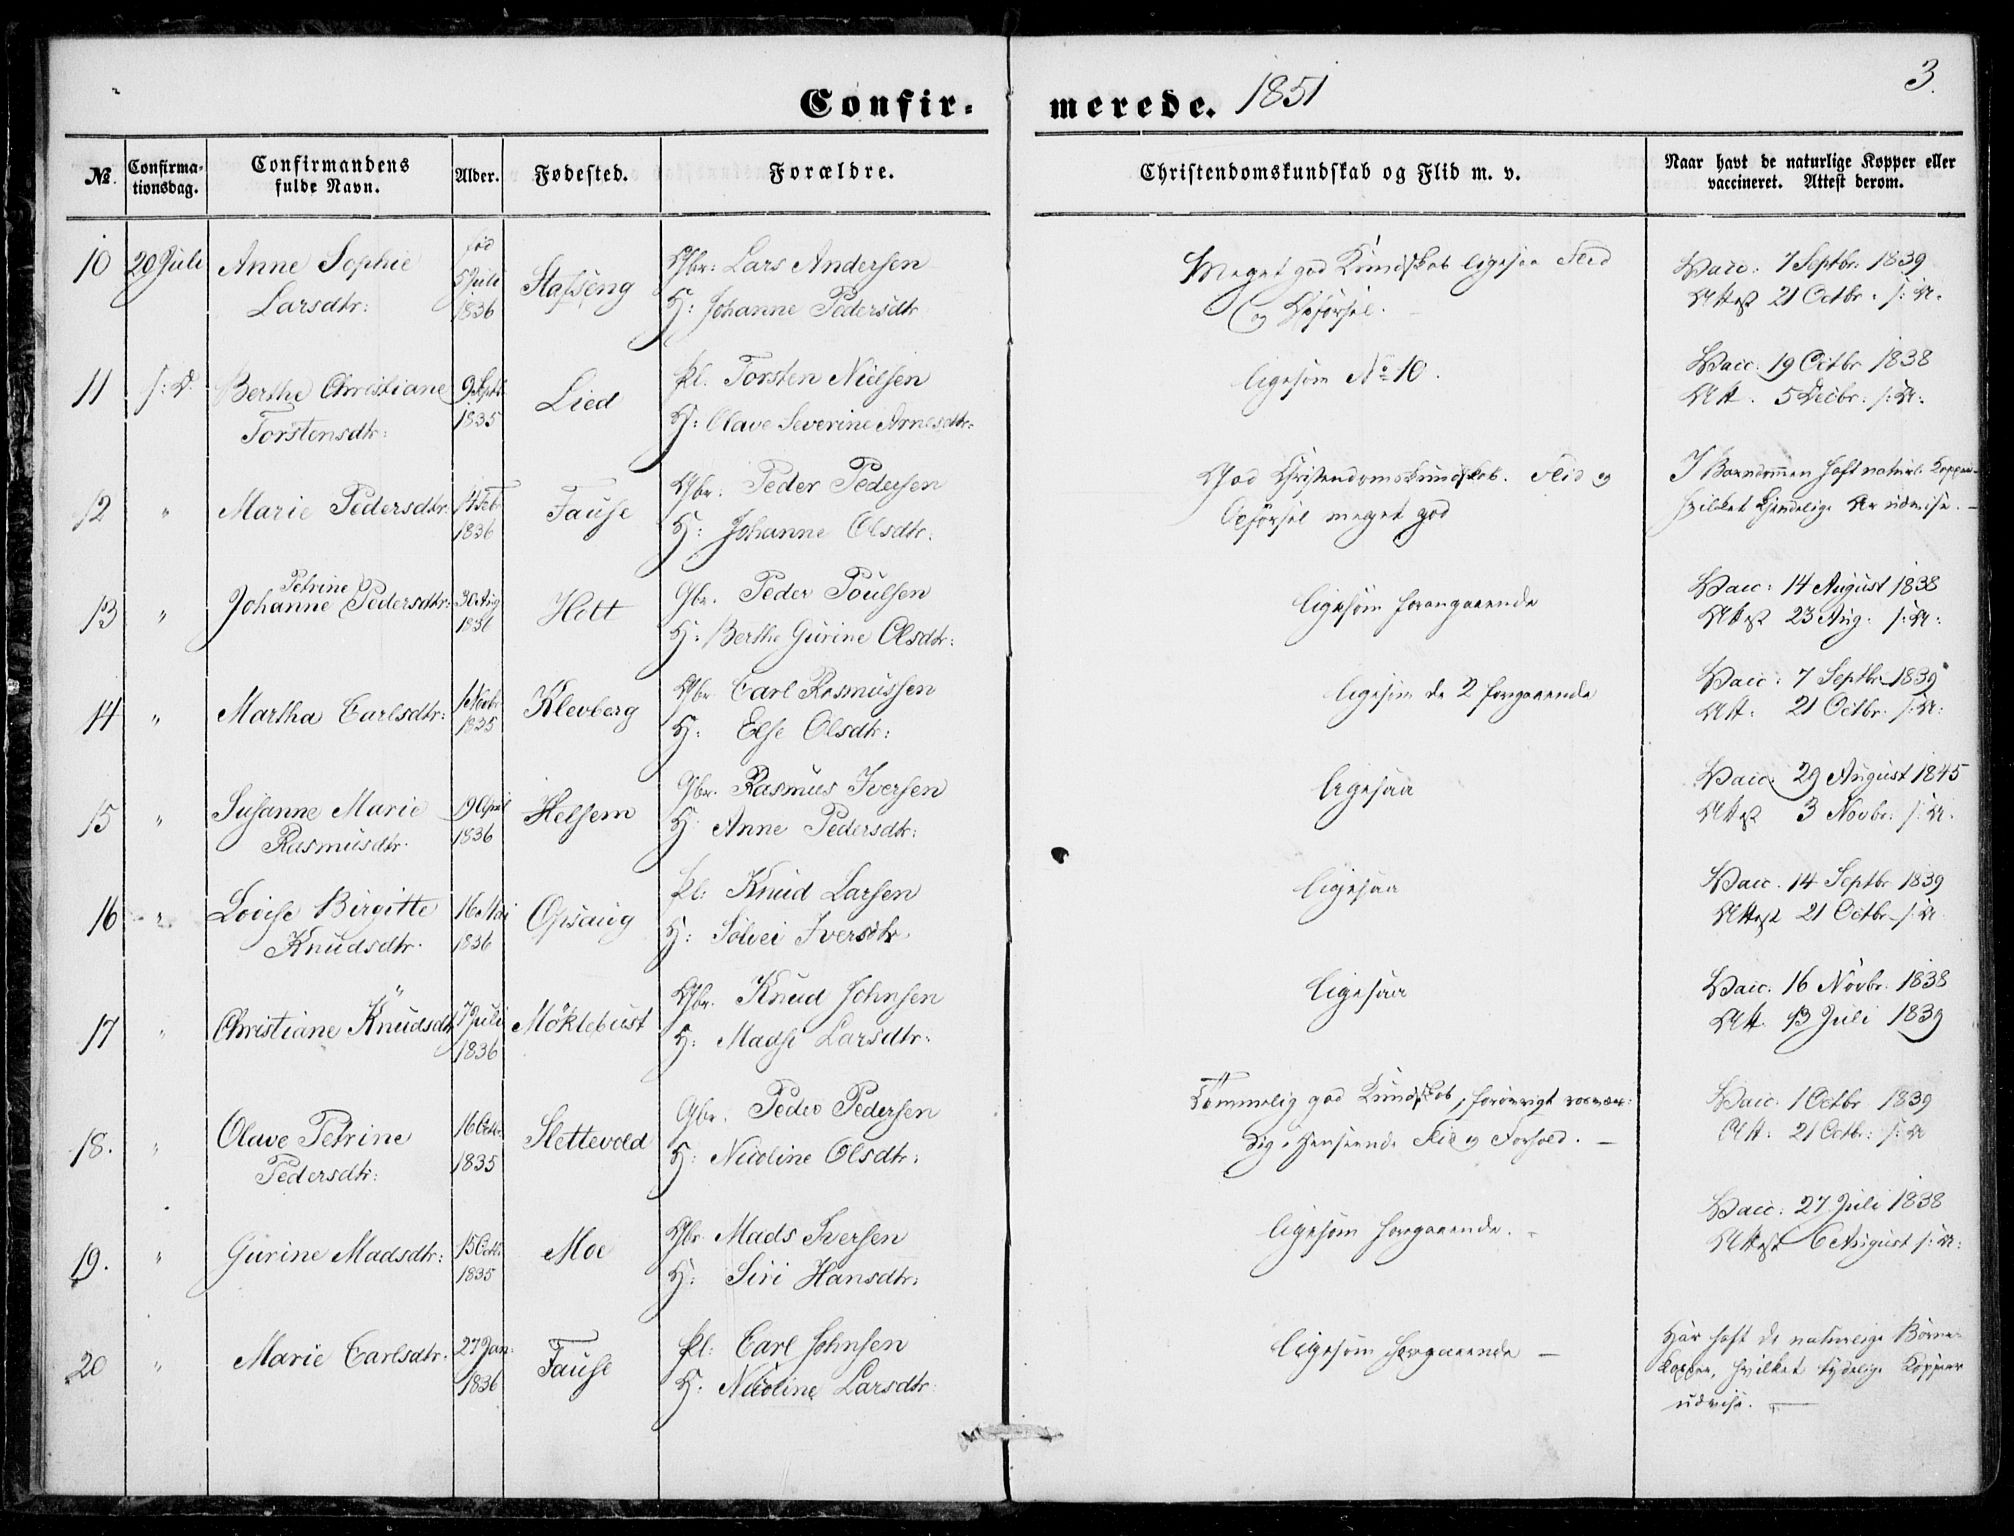 Confir-merede. 1851
3.
№ Confirma-tionsdag. Confirmandens fulde Navn. Alder. Fødested. Forældre. Christendomskundskab og Flid m. v. Naar havt de naturlige Kopper eller vaccineret. Attest derom.
10 20 Juli Anne Sophie Larsdtr: fød 5 Juli 1836 Stafseng Gbr: Lars Andersen
H: Johanne Pedersdtr
Meget god Kundskab ligesaa Flid
og Opførsel.
Vacc: 7 Septbr: 1839
Attest 21 Octbr. s: A.
11 s: D. Berthe Christiane Torstensdtr: 9 Septb 1835 Lied Pl. Torsten Nielsen
H: Olave Severine Arnesdtr:
ligesom No 10.
Vacc. 19 Octbr 1838
Att. 5 Decbr: s: A:
12 " Marie Pedersdtr. 14 Feb 1836 Fause Gbr. Peder Pedersen
H: Johanne Olsdtr:
God Christendomskundskab. Flid og
Opførsel meget god
I Barndommen haft naturl. Kopper
hvilket kjendelige Ar udvise.
13 " Johanne Petrine Pedersdtr: 30 Aug Hott Gbr. Peder Poulsen
H: Berthe Gurine Olsdtr:
ligesom foregaaende
Vacc: 14 August 1838
Attest 23 Aug: s: A:
14 " Martha Carlsdtr: 1 Novbr 1835 Klevberg Gbr Carl Rasmussen
H: Else Olsdtr:
ligesom de 2 foregaaende
Vacc: 7 Septbr 1839
Att: 21 Octbr: s: A:
15 " Susanne Marie Rasmusdtr. 19 April 1836 Helsem Gbr. Rasmus Iversen
H Anne Pedersdtr:
ligesaa
Vacc. 29 August 1845
Attest 3 Novbr: s: A.
16 " Lovise Birgitte Knudsdtr. 16 Mai 1836 Opsaug Pl: Knud Larsen
H: Sølvei Iversdtr
ligesaa
Vacc. 14 Septbr 1839
Attest 21 Octbr. s: A
17 " Christiane Knudsdtr 7 Juli 1836 Möklebust Gbr. Knud Johnsen
H: Madsi Larsdtr:
ligesaa
Vacc. 16 Novbr. 1838
Att. 13 Juli 1839
18. " Olave Petrine Pedersdtr: 16 Octbr 1835 Slettevold Gbr. Peder Pedersen
H: Nicoline Olsdtr:
Temmelig god Kundskab, forøvrigt roesvær-
dig i Henseende Flid og Forhold.
Vacc. 1 Octbr 1839
Att: 21 Octbr: s: A
19. " Gurine Madsdtr: 15 Octb. 1835 Moe Gbr Mads Iversen
H: Siri Hansdtr:
ligesom foregaaende.
Vacc: 27 Juli 1838
Attest 6 August s: A:
20 " Marie Carlsdtr. 27 Jan: 1836 Fause Pl: Carl Johnsen
H: Nicoline Larsdtr
ligesom foregaaende
Har haft de naturlige Børne-
kopper, hvilket tydelige Kopper
udvise.